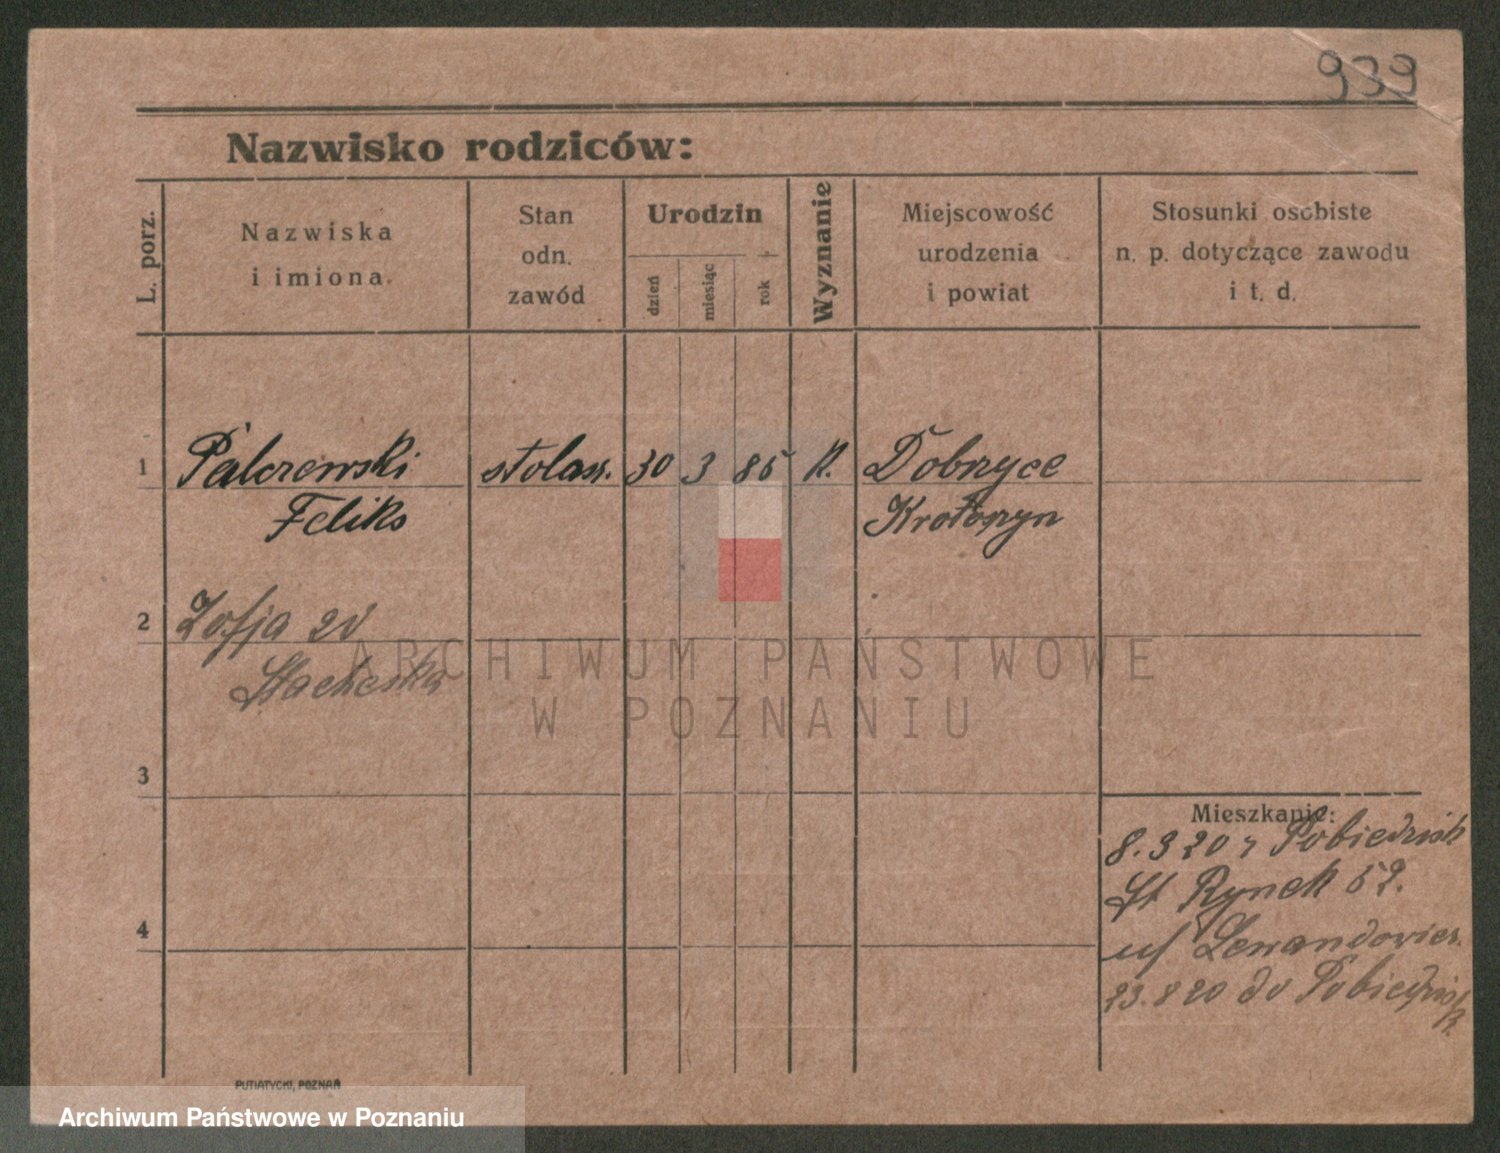 939
Nazwisko rodziców:
L. porz.
Nazwiska
i imiona.
Stan
odn.
zawód
Urodzin
dzień
miesiąc
rok
Wyznanie
Miejscowość
urodzenia
i powiat
Stosunki osobiste
n. p. dotyczące zawodu
i t. d.
1
Palczewski
Feliks
stolarz.
30
3
85
K.
Dobrzyce
Krotoszyn
2
Zofja
ARCHIWUM PAŃSTWOWE
W POZNANIU
3
4
Mieszkanie:
8.3 20 z Pobiedzisk
St Rynek 52.
Lewandowicz.
23.8 20 do Pobiedzisk
PUTIATYCKI, POZNAŃ
Archiwum Państwowe w Poznaniu